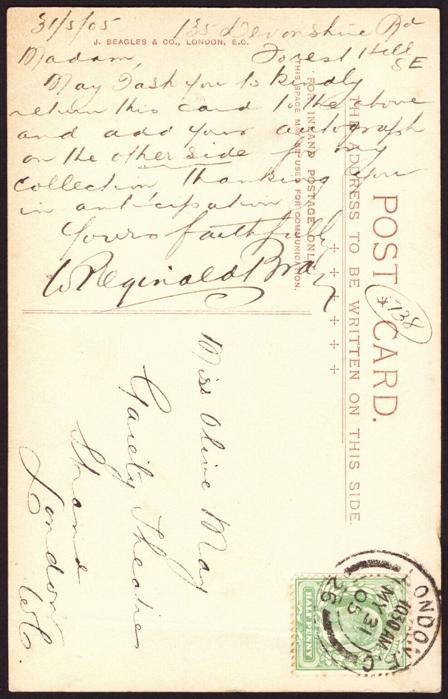 31/5/05 135 Devonshire Rd
J. BEAGLES & CO., LONDON, E.C.
Forest Hill
S E
Madam,
May I ask you to kindly
return this card to the above
and add your autograph
on the other side for my
collection thanking you
in anticipation
Yours faithfully
W Reginald Bray
POST CARD.
THE ADDRESS TO BE WRITTEN ON THIS SIDE.
FOR INLAND POSTAGE ONLY
THIS SPACE MAY BE USED FOR COMMUNICATION.
Miss Olive May
Gaiety Theatre
Strand
London
W.C.
HALF PENNY
10 30 AM
MY 31
05